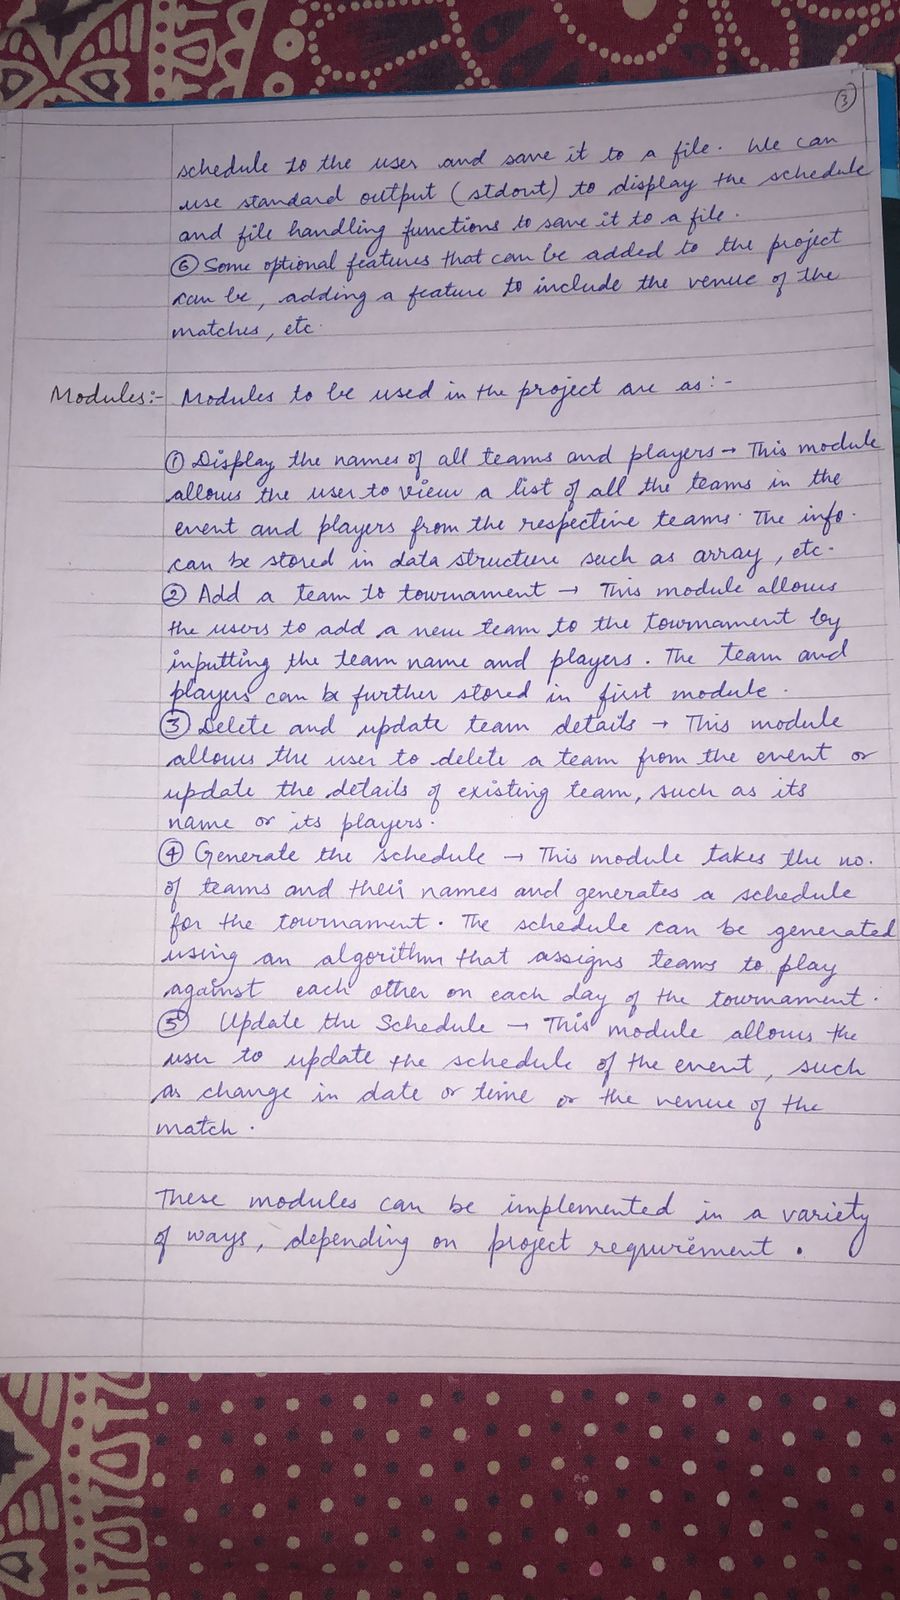 3
schedule to the user and save it to a file. We can
use standard output (stdout) to display the schedule
and file handling functions to save it to a file.
⑥ Some optional features that can be added to the project
can be, adding a feature to include the venue of the
matches, etc.
Modules:- Modules to be used in the project are as:-
① Display the names of all teams and players → This module
allows the user to view a list of all the teams in the
event and players from the respective teams. The info.
can be stored in data structure such as array, etc.
② Add a team to tournament → This module allows
the users to add a new team to the tournament by
inputting the team name and players. The team and
players can be further stored in first module.
③ Delete and update team details → This module
allows the user to delete a team from the event or
update the details of existing team, such as its
name or its players.
④ Generate the schedule → This module takes the no.
of teams and their names and generates a schedule
for the tournament. The schedule can be generated
using an algorithm that assigns teams to play
against each other on each day of the tournament.
⑤ Update the Schedule → This module allows the
user to update the schedule of the event, such
as change in date or time or the venue of the
match.
These modules can be implemented in a variety
of ways, depending on project requirement.